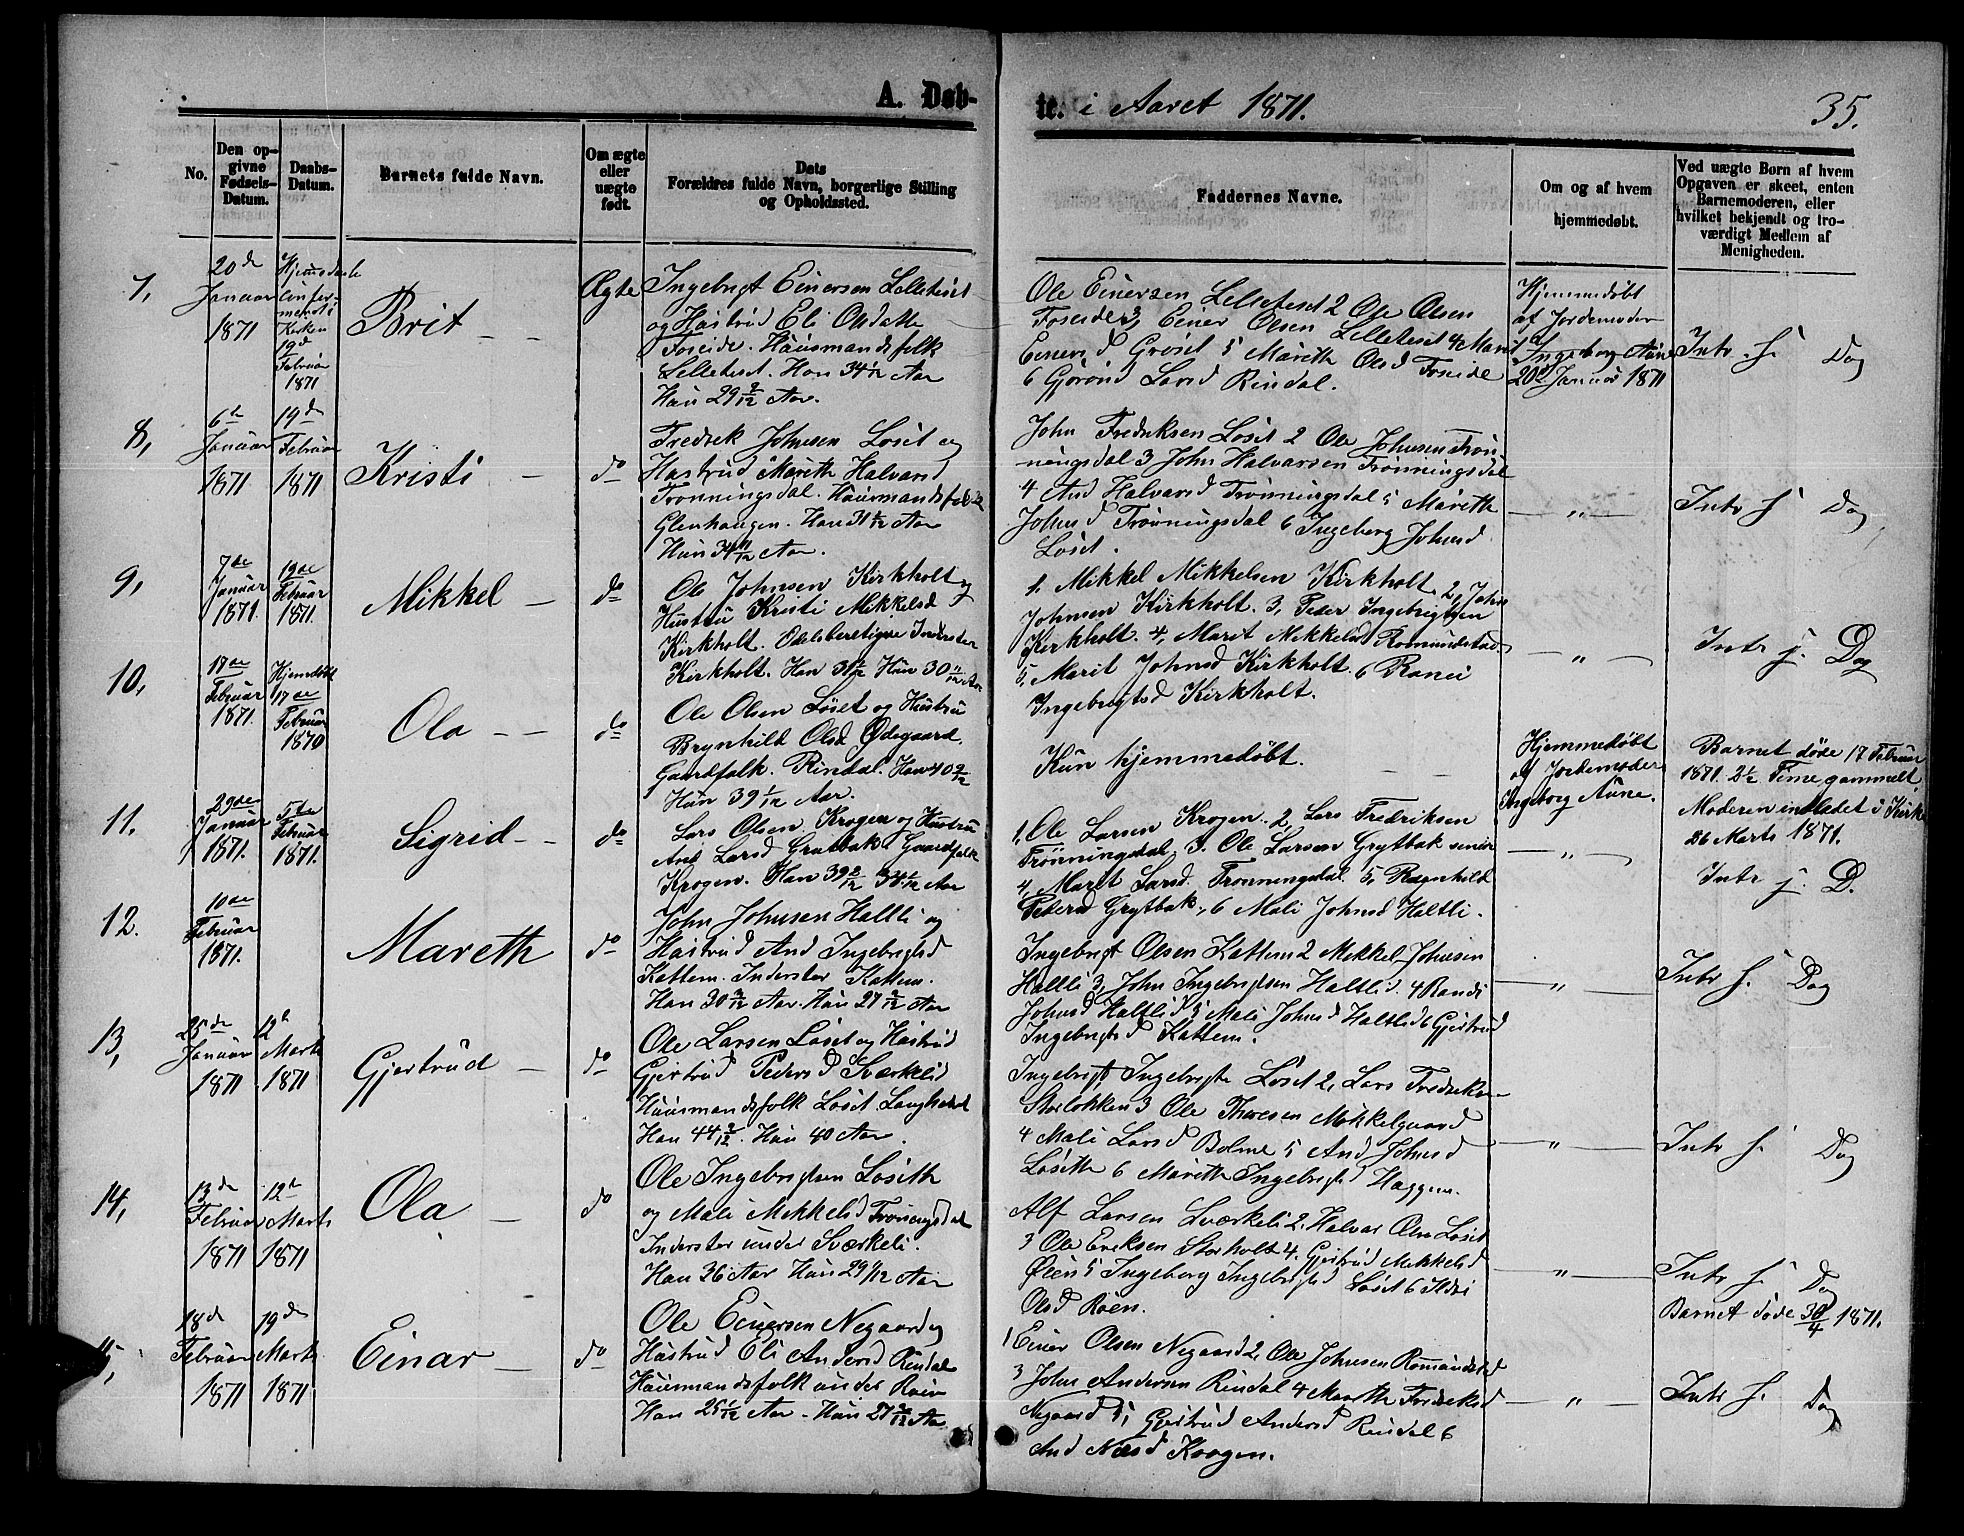 A. Døb-
te. i Aaret 1871.
35.
No.
Den op-
givne
Fødsels-
Datum.
Daabs-
Datum.
Barnets fulde Navn.
Om ægte
eller
uægte
født.
Dets
Forældres fulde Navn, borgerlige Stilling
og Opholdssted.
Faddernes Navne.
Om og af hvem
hjemmedøbt.
Ved uægte Børn af hvem
Opgaven er skeet, enten
Barnemoderen, eller
hvilket bekjendt og tro-
værdigt Medlem af
Menigheden.
7,
20de
Januar
1871
Hjemdøbt
Kirken
19d
Februar
1871
Brit
Ægte
Ingebrigt Einersen Lilleteset
og Hustrud Eli Olsdatte
Foseide. Huusmandsfolk
Lilleteset. Han 34 1/12 Aar
Hun 29 2/12 Aar.
Ole Einersen Lilleteset 2 Ole Olsen
Foseide 3, Einer Olsen Lilleteset 4 Marit
Einersd Grøset 5 Mareth Olsd Foseide
6 Gjørønd Larsd Rindal.
Hjemmedøbt
af Jordemoder
Ingeborg Aune
20d Januar 1871
Intr. f. Dag
8,
6te
Januar
1871
19de
Februar
1871
Kristi
do
Fredrek Johnsen Løset og
Hustrud Mareth Halvarsd
Trønningsdal. Huusmandsfolk
Glenhaugen. Han 31 Aar
Hun 34 11/12 Aar.
John Fredriksen Løset 2 Ole Johnsen Trøn-
ningsdal 3 John Halvarsen Trønningsdal
4 And Halvarsd Trønningsdal 5 Mareth
Johnsd Trønningsdal 6 Ingeborg Johnsd
Løset.
— „ —
Intr f Dag
9,
7de
Januar
1871.
19de
Februar
1871.
Mikkel
do
Ole Johnsen Kirkholt og
Hustru Kristi Mikkelsd
Kirkholt. Odelsberetigne Inderster
Kirkholt. Han 31 Hun 30 11/12 Aar
1. Mikkel Mikkelsen Kirkholt. 2, John
Johnsen Kirkholt. 3, Peder Ingebrigtsen
Kirkholt. 4, Marit Mikkelsd Romundstad
5, Marit Johnsd Kirkholt. 6 Ranei
Ingebrigtsd Kirkholt.
— „ —
Intr j. Dag
10,
17de
Februar
1871.
Hjemdøbt
17de
Februar
1870
Ola
do
Ole Olsen Løset og Hustru
Brynhild Olsd Ødegaard.
Gaardfolk. Rindal. Han 40 9/12
Hun 39 1/12 Aar.
Kun hjemmedøbt.
Hjemmedøbt
af Jordemoder
Ingeborg Aune.
Barnet døde 17 Februar
1871. 2½ Time gammelt.
Moderen indledet i Kirke
26 Marts 1871.
11.
29de
Januar
1871.
5te
Februar
1871.
Sigrid
do
Lars Olsen Krogen og Hustru
Ane Larsd Grytbak Gaardfolk
Krogen. Han 39 2/12 Aar
1, Ole Larsen Krogen. 2, Lars Fredriksen
Trønningdal 3. Ole Larsen Grytbak senior
4, Marit Larsd. Trønningdal. 5, Ragnhild
Pedersd Grytbak, 6 Mali Johnsd Haltli.
— „ —
Intr j. D.
12.
10de
Februar
1871.
Mareth
do
John Johnsen Haltli og
Hustrud And Ingebrigtsd
Kattem. Inderster Kattem.
Han 30 Aar. Hun 27 Aar
Ingebrigt Olsen Kattem 2 Mekkel Johnsen
Haltli 3, John Ingebrigtsen Haltlid. 4 Randi
Johnsd Haltlid 5 Mali Johnsd Haltlid 6 Gjertrud
Ingebrigtsd Kattem.
— „ —
Intr f. Dag
13,
25de
Januar
1871
12te
Marts
1871
Gjertrud
do
Ole Larsen Løset og Hustrud
Gjertrud Pedersd Sværkeli
Huusmandsfolk Løset
Han 44 2/12. Hun 40 Aar.
Ingebrigt Ingebrigts Løset 2, Lars Fredreks-
Storløkken 3 Ole Thoresen Mekkelgaard
4 Mali Larsd Bolme 5 And Johnsd
Løseth 6 Mareth Ingebrigtsd Haggen.
— „ —
Intr f. Dag
14,
13de
Februar
1871
12te
Marts
1871
Ola
do
Ole Ingebrigtsen Løseth
og Mali Mekkelsd Trøningsdal
Inderster under Sværkeli.
Han 36 Aar Hun 29 1/12 Aar
Alf Larsen Sværkeli 2, Halvar Olsen Løset
3 Ole Eriksen Storholt 4. Gjertrud Mekkelsd
Øien 5 Ingeborg Ingebrigtsd Løset 6 Ildri
Olsd Røen.
— „ —
Intr f. Dag
Barnet døde 30/4 1871.
15,
18de
Februar
1871
19de
Marts
1871
Einar
do
Ole Einersen Negaard og
Hustrud Eli Andersd Rindal
Huusmandsfolk under Røen
Han 25 1/12 Aar. Hun 27 Aar
1 Einer Olsen Negaard 2, Ole Johnsen Romundstad
3 John Andersen Rindal 4 Mareth Fredreksd
Negaard 5, Gjertrud Andersd Rindal 6
And Nilsd Krogen.
— „ —
Intr f. Dag